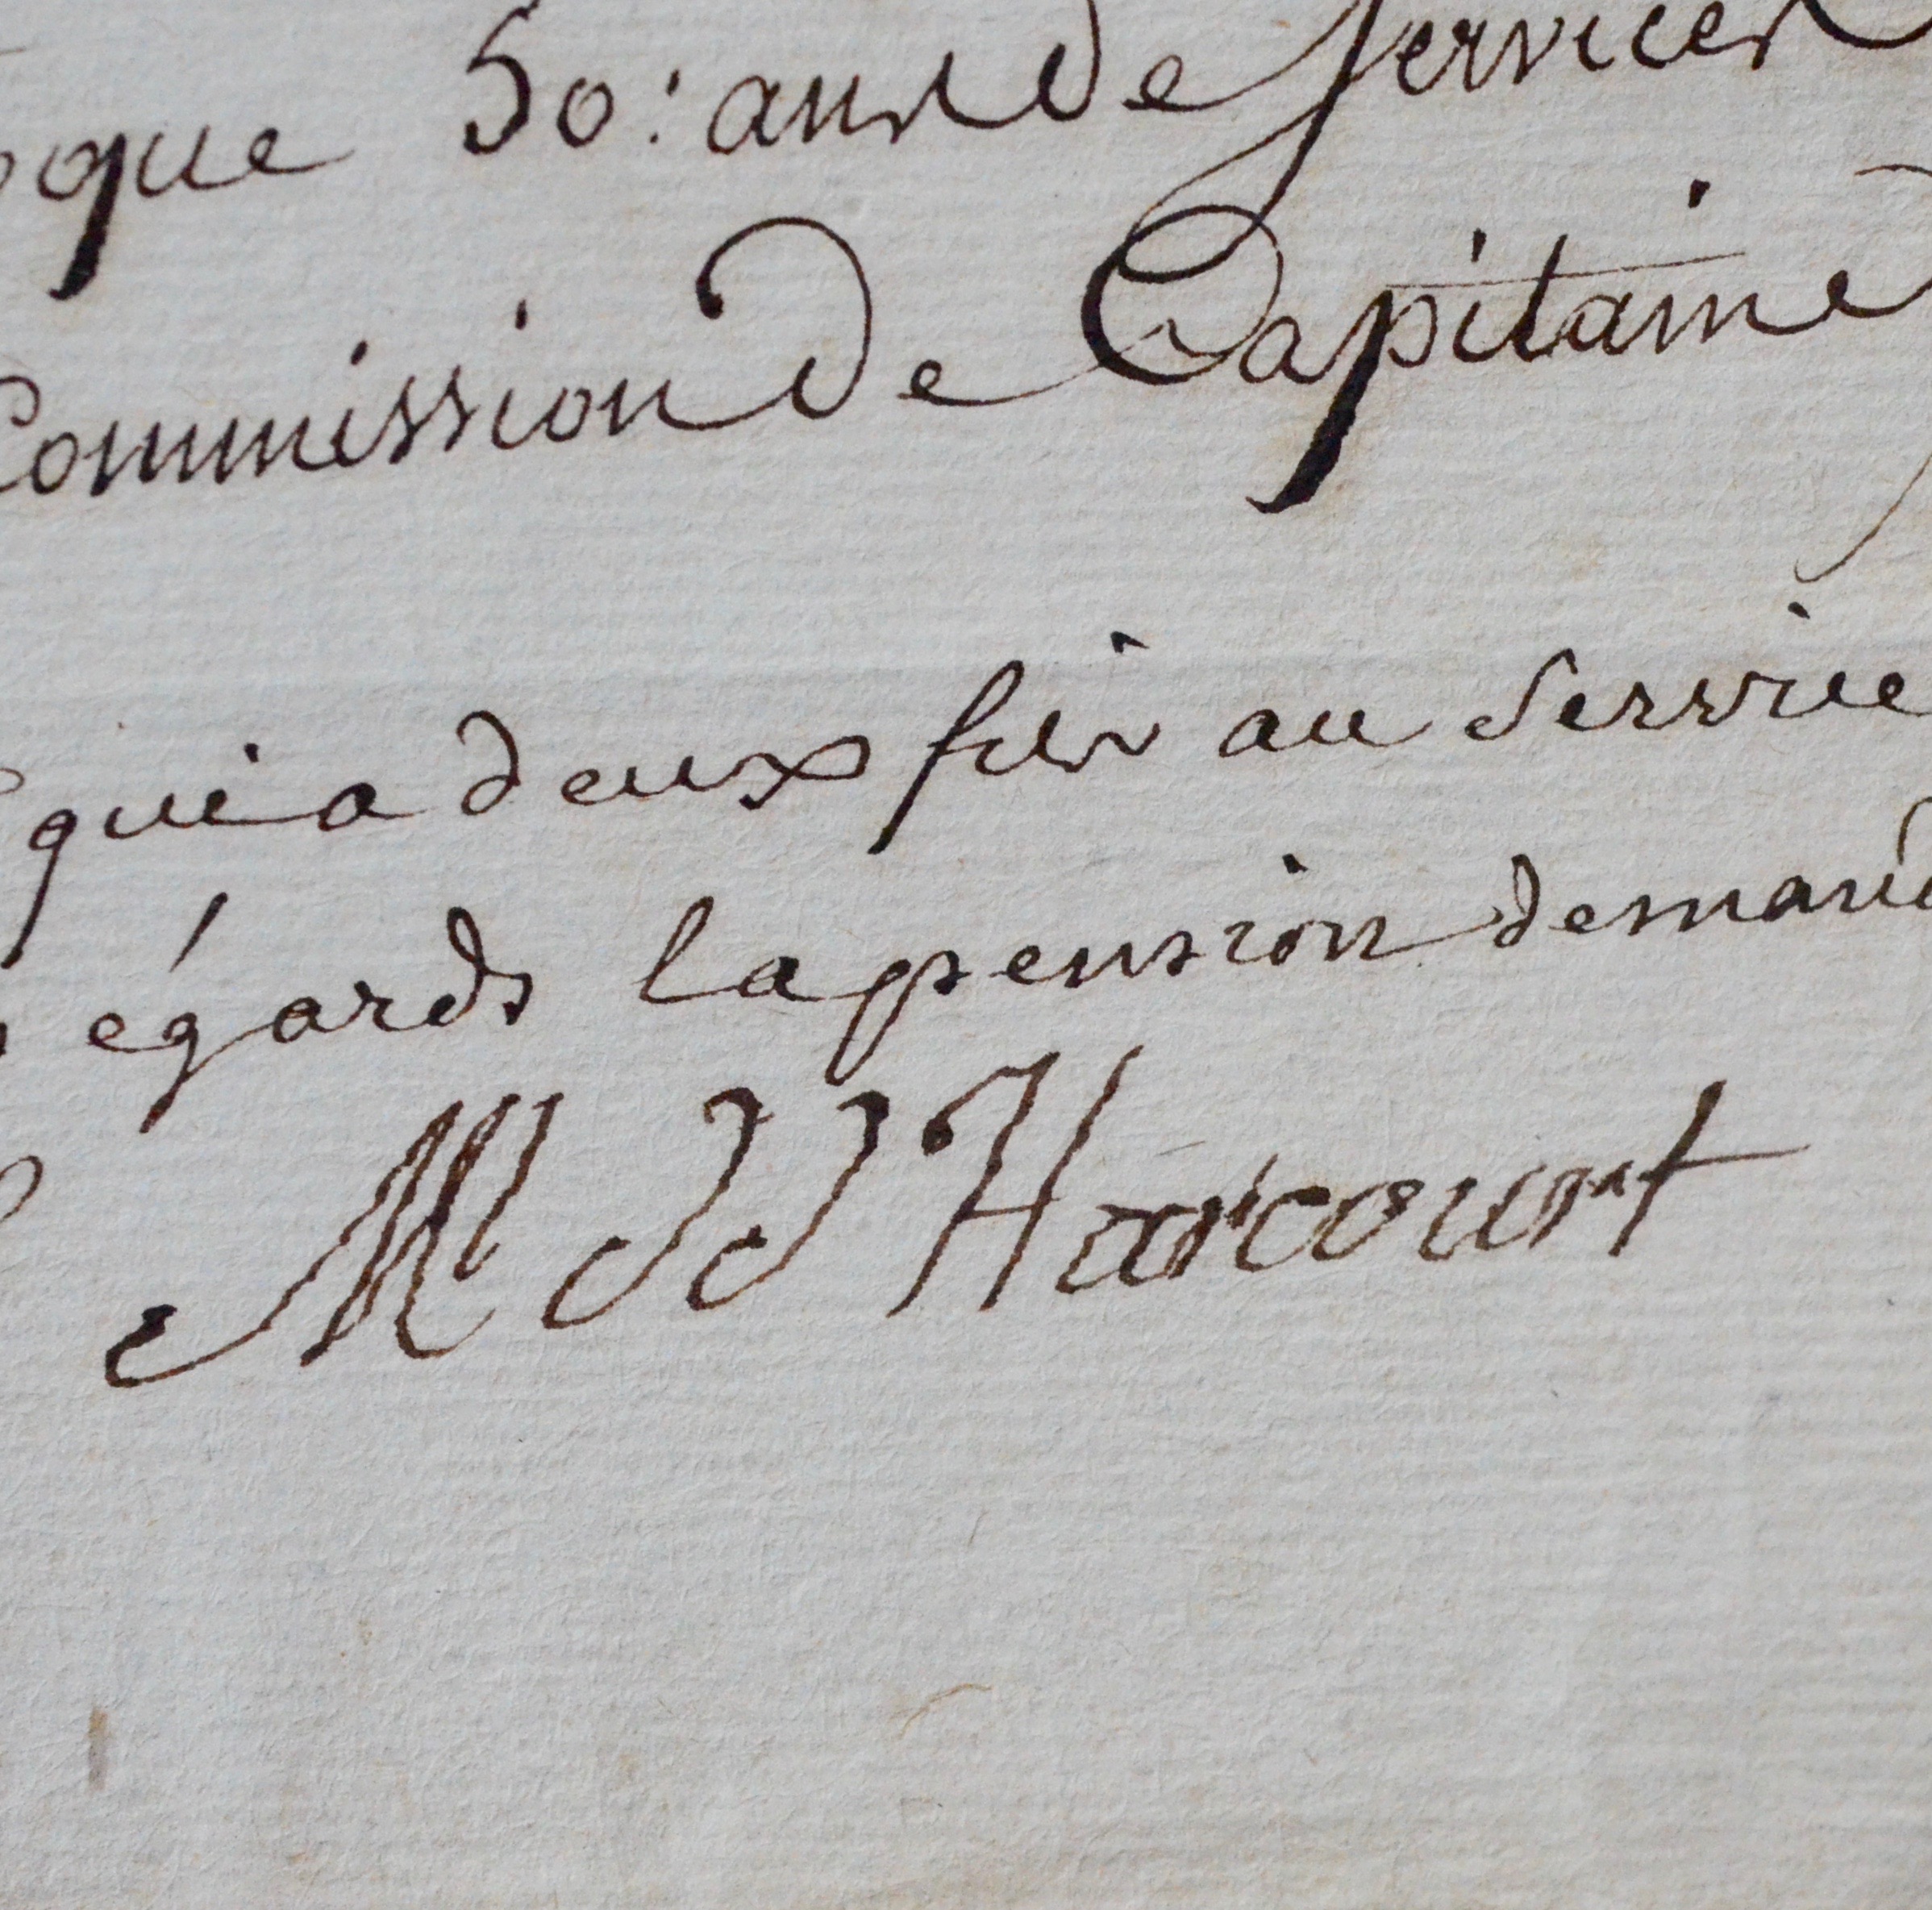 que 50: ans de services
Commission de Capitaine
qui a deux fils au service
egards la pension demand
M d d'Harcourt